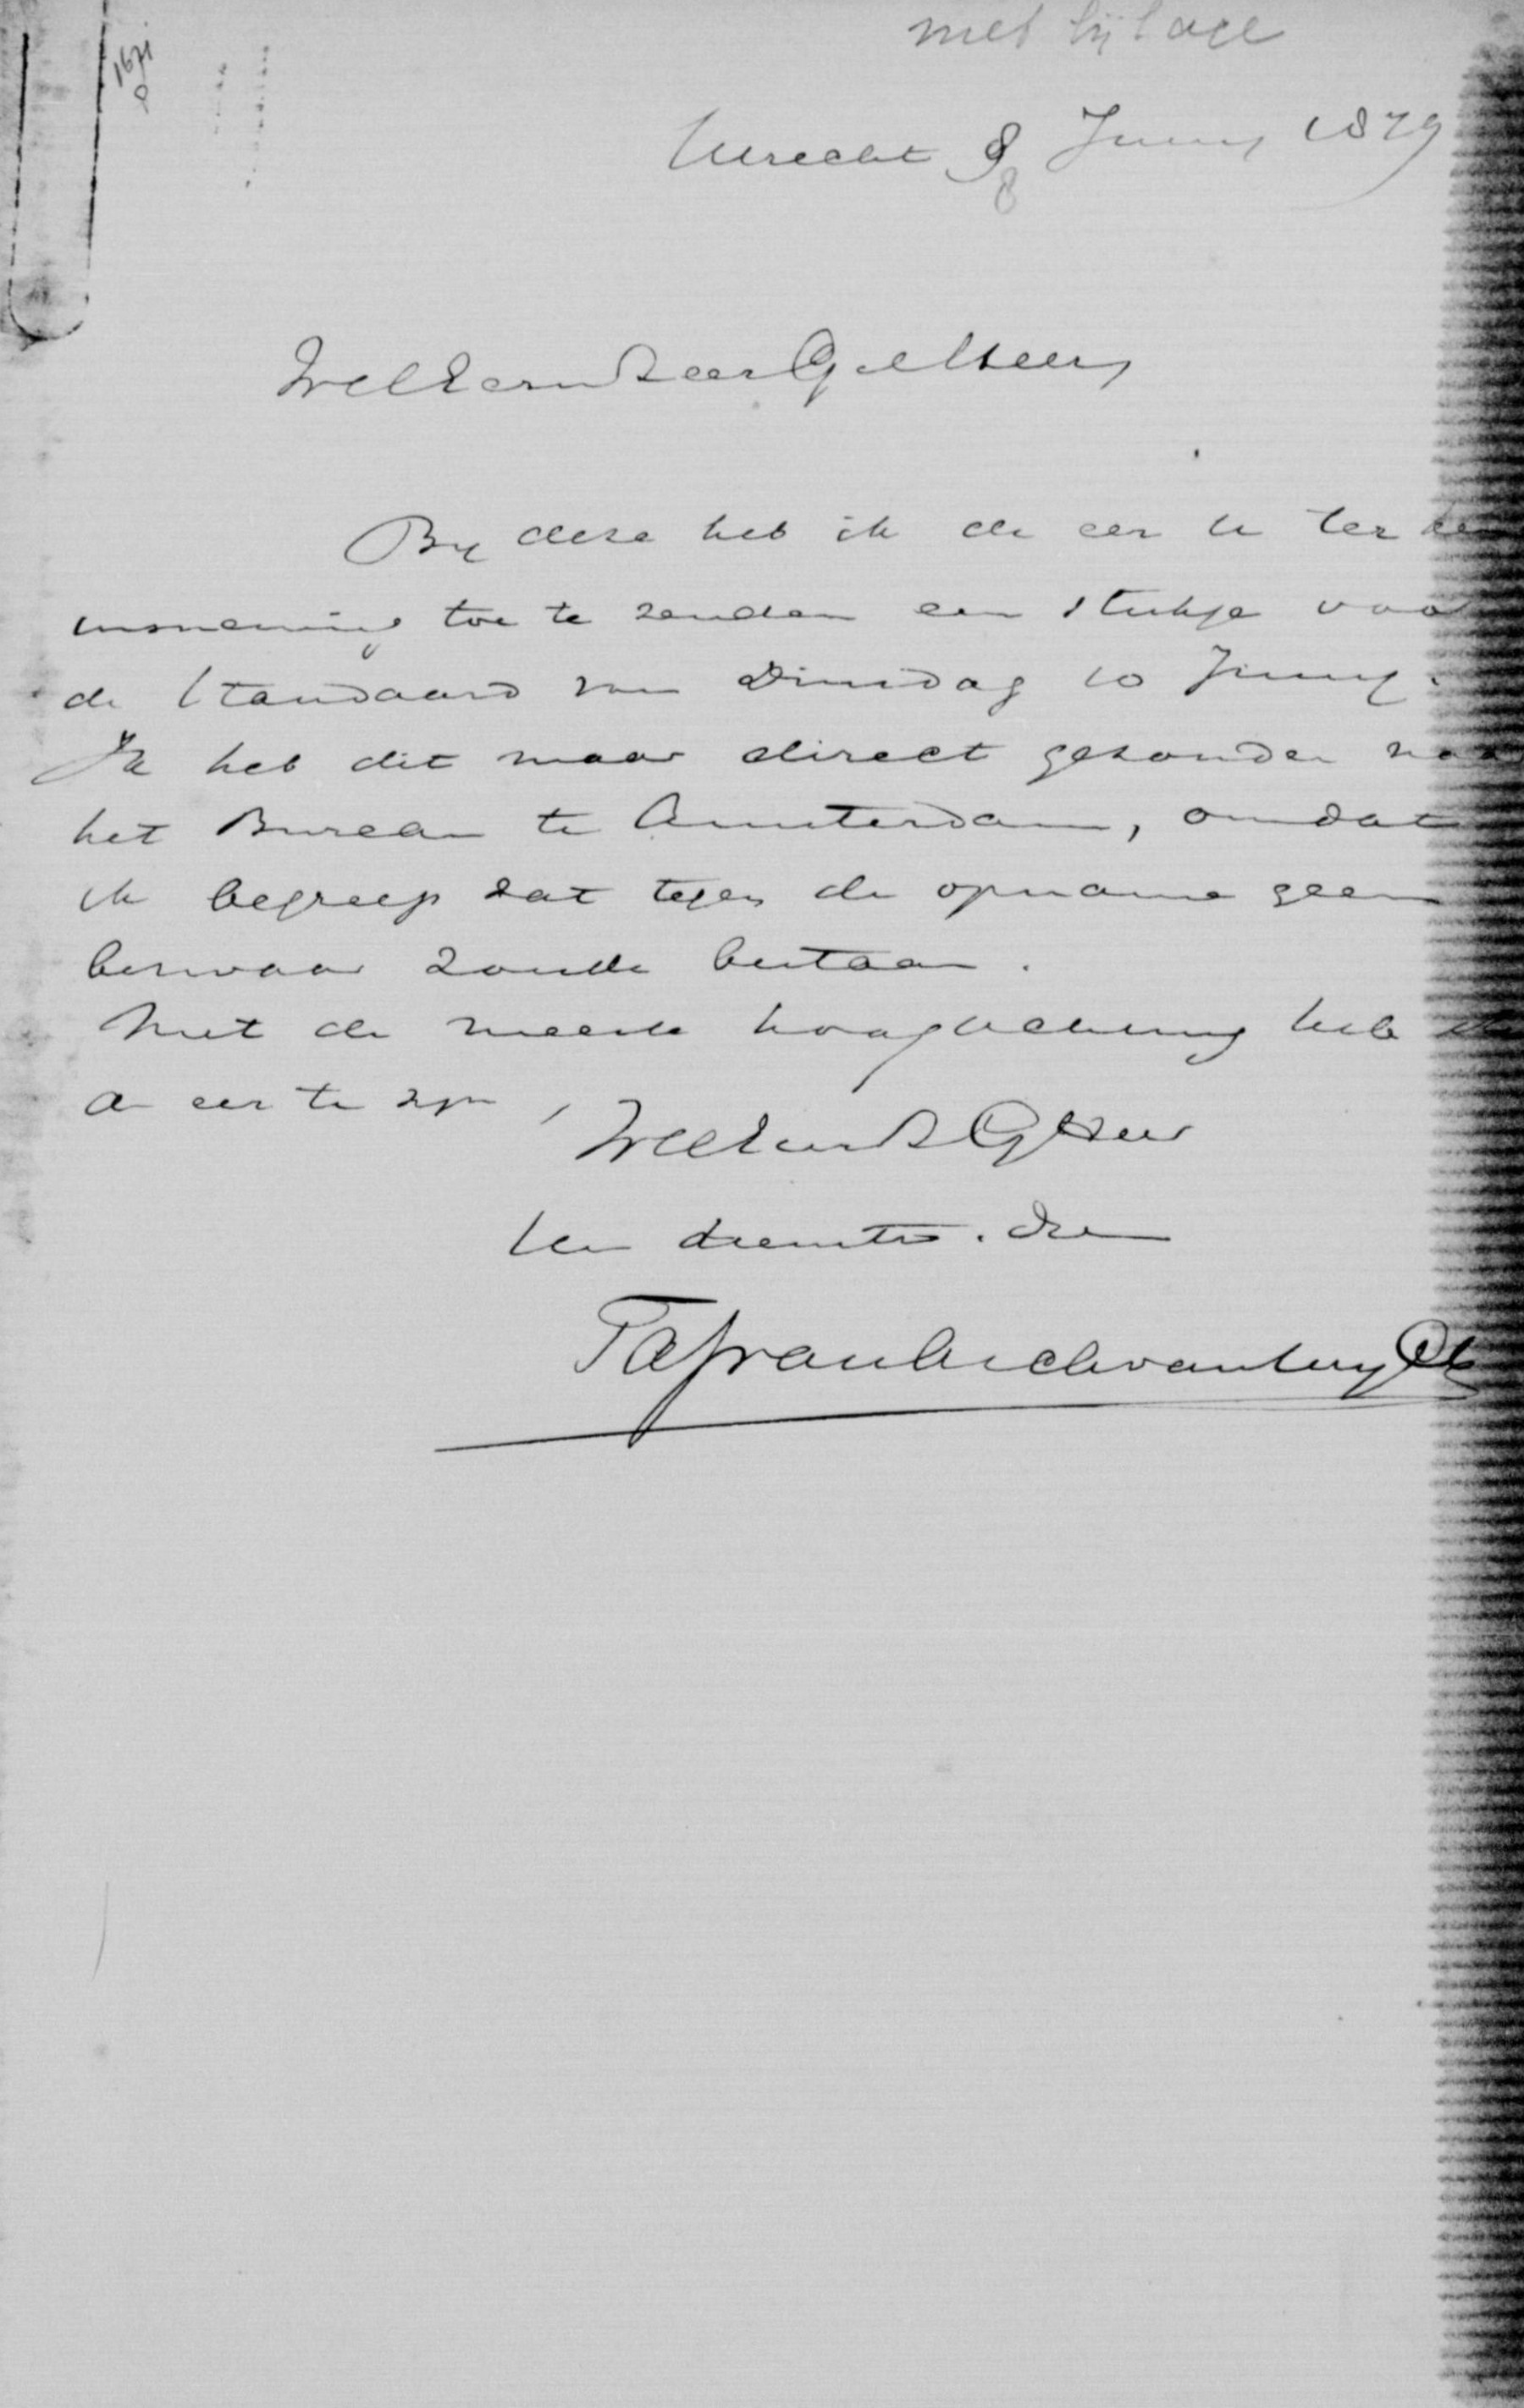 met bijlage
1671
Utrecht 8 Juny 1879
8
WelEerwZeerGelHeer,
By deze heb ik de eer U ter ken
nisneming toe te zenden een stukje voor
de Standaard van Dinsdag 10 Juny.
Ik heb dit maar direct gezonden naar
het Bureau te Amsterdam, omdat
ik begreep dat tegen de opname geen
bezwaar zoude bestaan.
Met de meeste hoogachting heb ik
de eer te zyn,
WelEerwZGHeer
Uw dienstw. dr